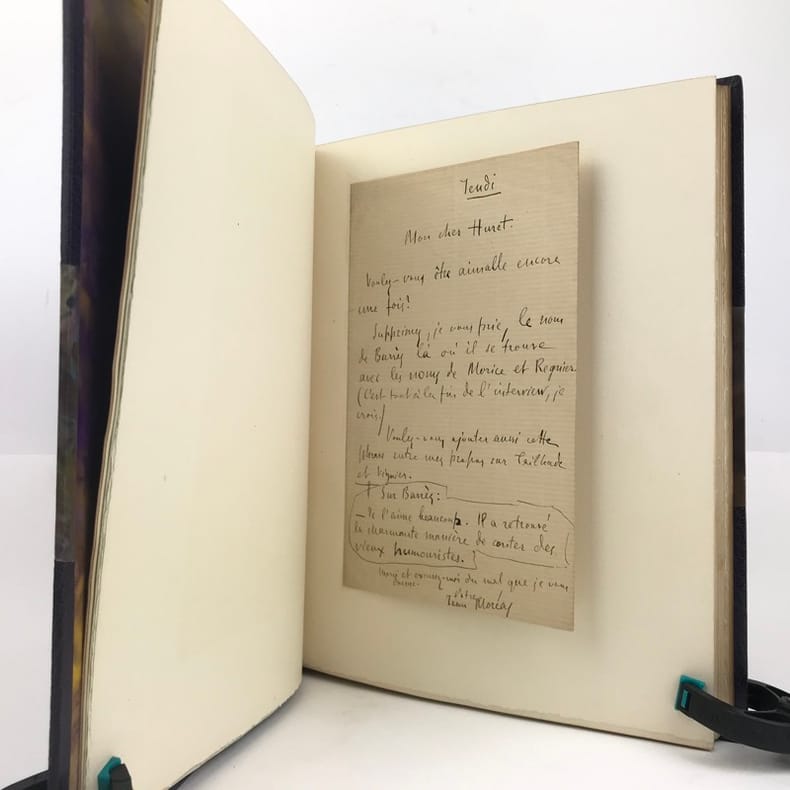 Jeudi
Mon cher Huret.
Voulez-vous être aimable encore
une fois!
Supprimez, je vous prie, le nom
de Barrès là où il se trouve
avec les noms de Morice et Regnier.
(C'est tout à la fin de l'interview, je
crois)
Voulez-vous ajouter aussi cette
phrase entre mes propos sur Tailhade
et Vignier.
Sur Barrès:
— Je l'aime beaucoup. Il a retrouvé
la charmante manière de conter des
vieux humouristes.
Merci et excusez-moi du mal que je vous
donne.
Votre
Jean Moréas